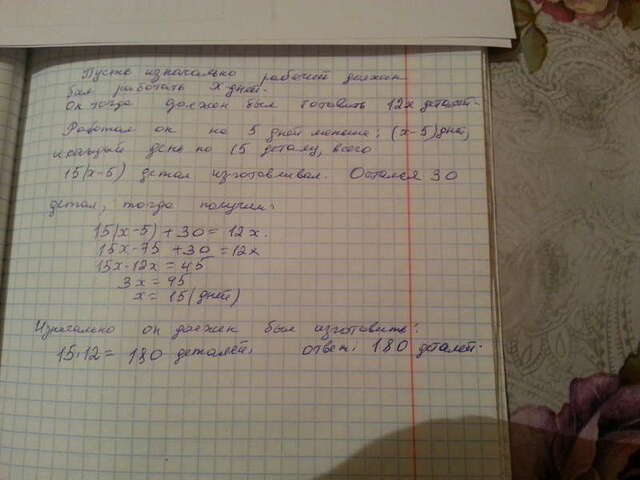 Пусть изначально рабочий должен
был работать x дней.
Он тогда должен был готовить 12x деталей.
Работал он на 5 дней меньше: (x-5) дней,
и каждый день по 15 деталу, всего
15(x-5) детал изготовливал. Остался 30
детал, тогда получим:
15(x-5) + 30 = 12x.
15x-75 + 30 = 12x
15x-12x = 45
3x = 45
x = 15 (дней)
Изначально он должен был изготовить:
15·12 = 180 деталей. ответ: 180 деталей.